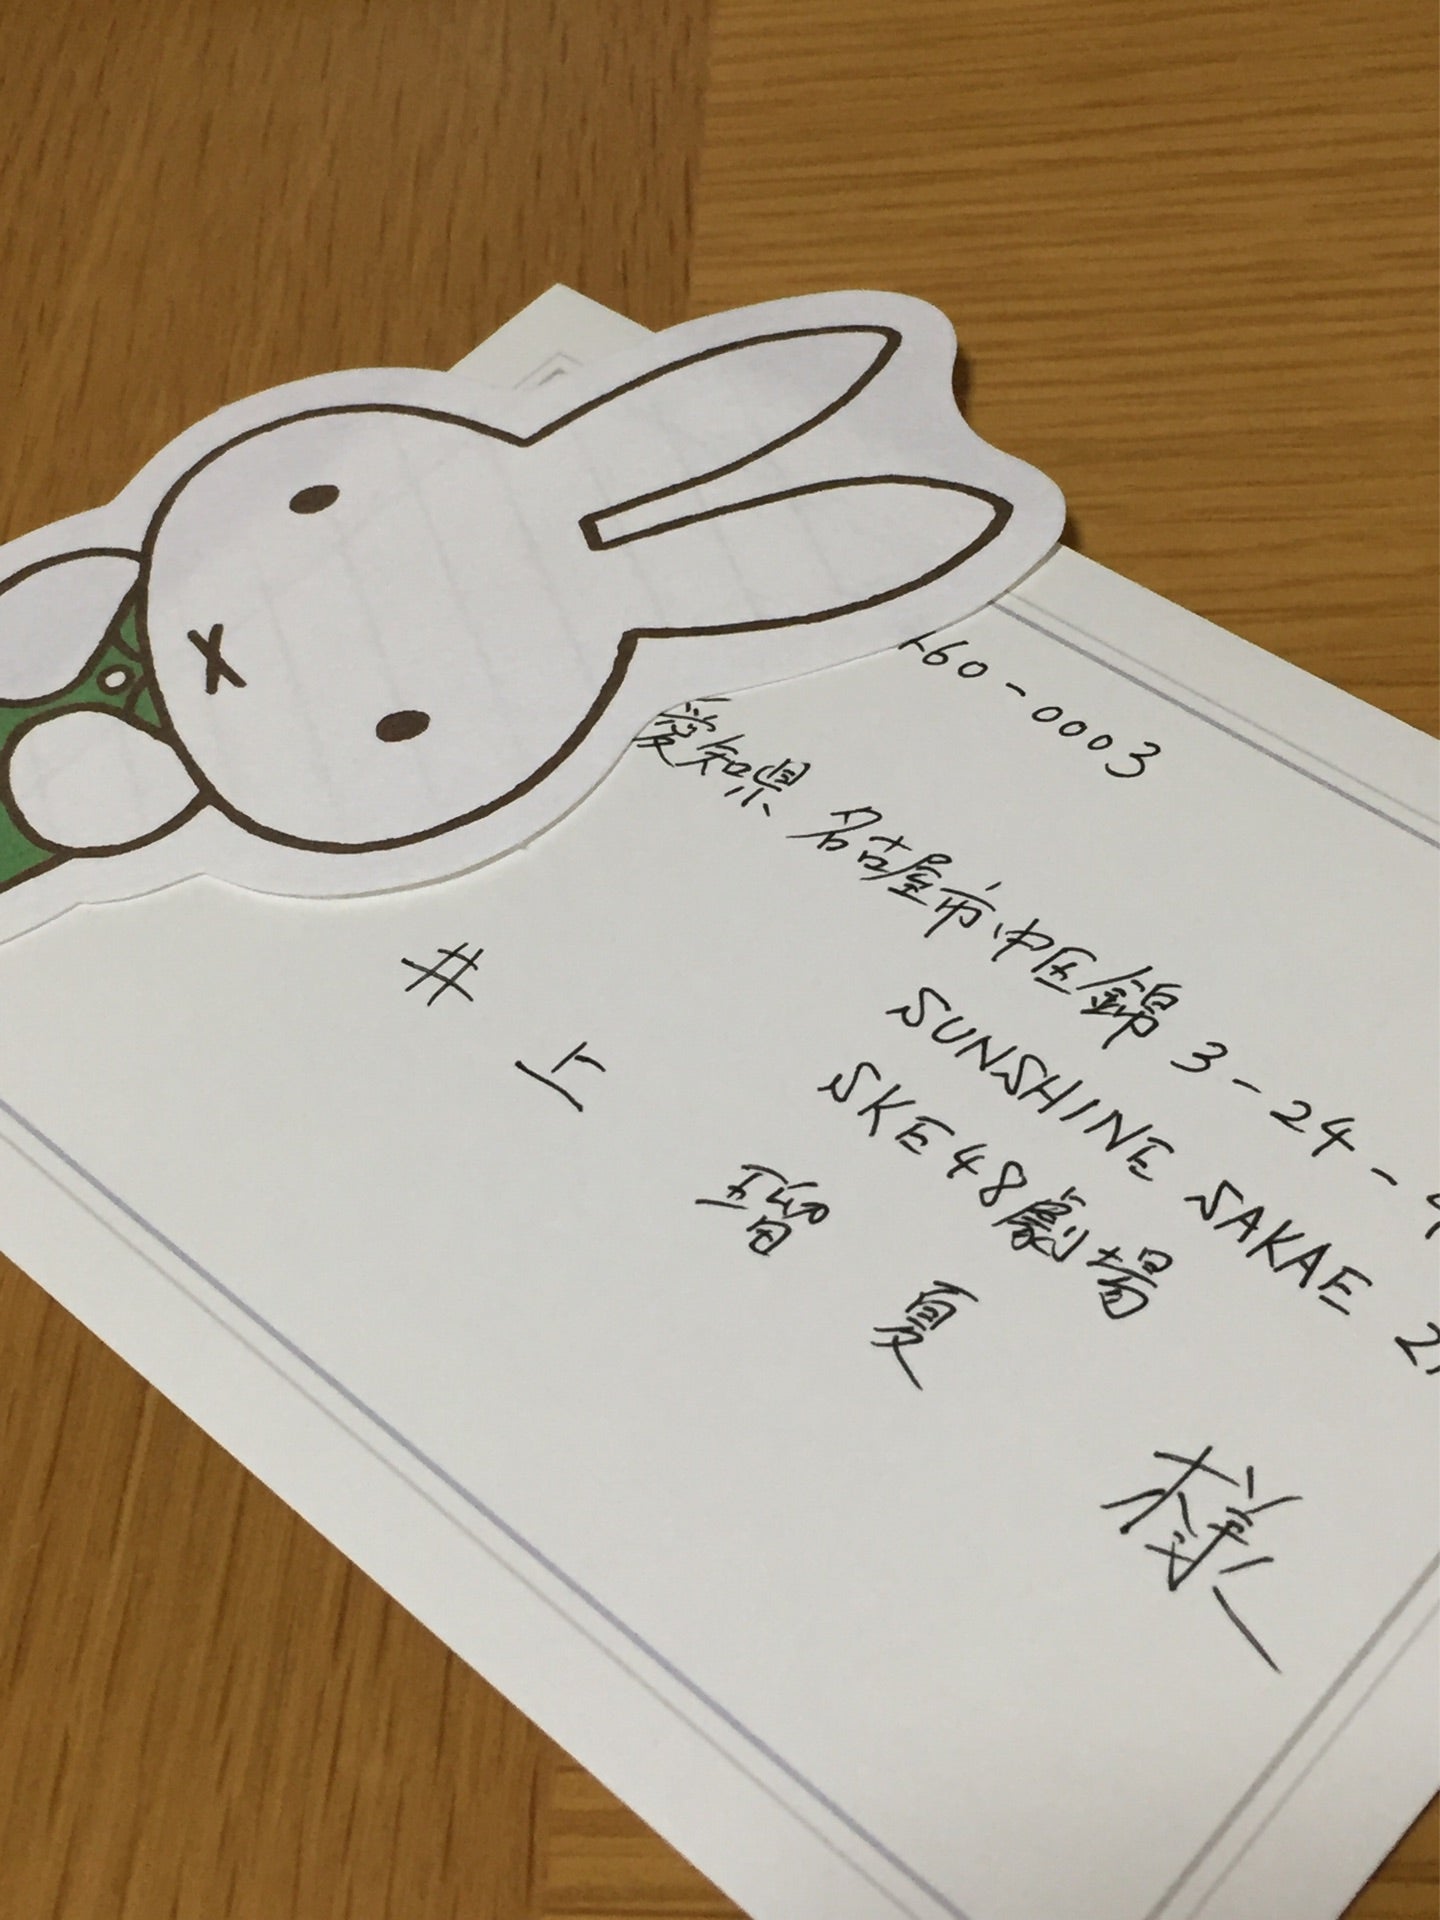 460-0003
愛知県名古屋市中区錦3-24-4
SUNSHINE SAKAE 2F
SKE48劇場
井上瑠夏様